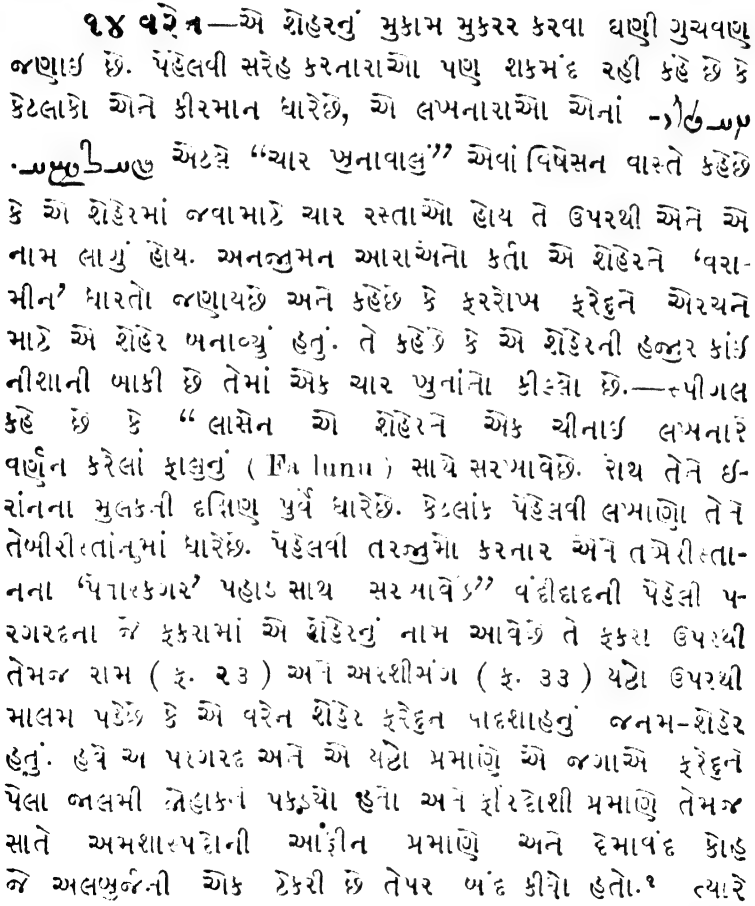 ૧૪ વરેન—એ શેહરનું મુકામ મુકરર કરવા ઘણી ગુચવણ
જણાઇ છે. પેહેલવી સરેહ કરનારાઓ પણ શકમંદ રહી કહે છે કે
કેટલાકો એને કીરમાન ધારેછે, એ લખનારાઓ એનાં
એટલે “ચાર ખુનાવાલું” એવાં વિષેસન વાસ્તે કહેછે
કે એ શેહેરમાં જવામાટે ચાર રસ્તાઓ હોય તે ઉપરથી એને એ
નામ લાગું હોય. અનજુમન આરાઅનો કર્તા એ શેહેરને ‘વરા-
મીન’ ધારતો જણાયછે અને કહેછે કે ફરરોખ ફરેદુને એરચને
માટે એ શેહેર બનાવ્યું હતું. તે કહેછે કે એ શેહેરની હજુર કાંઇ
નીશાની બાકી છે તેમાં એક ચાર ખુનાંનો કીલ્લો છે.—સ્પીગલ
કહે છે કે “લાસેન એ શેહેરને એક ચીનાઇ લખનારે
વર્ણન કરેલાં ફાલુનું (Fa lunu) સાથે સરખાવેછે. રોથ તેને ઇ-
રાંનના મુલકની દક્ષિણ પુર્વે ધારેછે. કેટલાંક પેહેલવી લખાણો તેને
તેબીરીસ્તાંનમાં ધારેછે. પેહેલવી તરજુમો કરનાર એને તબેરીસ્તા-
નના ‘પતાશ્કગર’ પહાડ સાથ સરખાવેછે” વંદીદાદની પેહેલી પ-
રગરદના જે ફકરામાં એ શેહેરનું નામ આવેછે તે ફકરા ઉપરથી
તેમજ રામ (ફ. ૨૩) અને અરશીસંગ (ફ. ૩૩) યષ્ટો ઉપરથી
માલમ પડેછે કે એ વરેન શેહેર ફરેદુન પાદશાહનું જનમ-શેહેર
હતું. હવે અ પરગરદ અને એ યષ્ટો પ્રમાણે એ જગાએ ફરેદુને
પેલા જાલમી ઝોહાકને પકડ્યો હતો અને ફીરદોશી પ્રમાણે તેમજ
સાતે અમશાસ્પદોની આફ્રીન પ્રમાણે અને દેમાવંદ કોહ
જે અલબુર્જની એક ટેકરી છે તેપર બંદ કીધો હતો.૧ ત્યારે